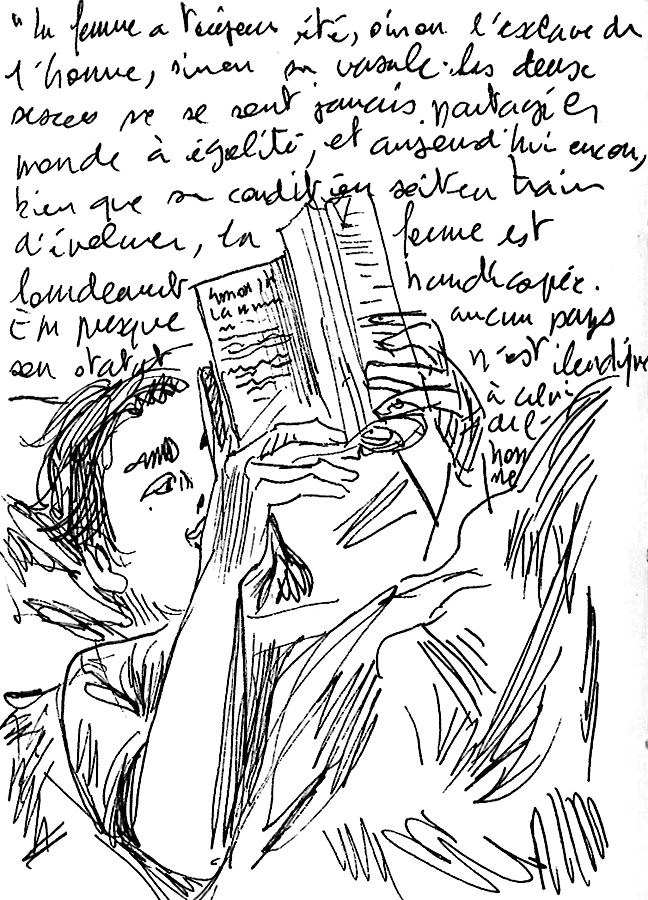 "La femme a toujours été, sinon l'esclave de
l'homme, sinon sa vassale. Les deux
sexes ne se sont jamais partagé le
monde à égalité, et aujourd'hui encore,
bien que sa condition soit en train
d'évoluer, la femme est
lourdement handicapée.
En presque aucun pays
son statut n'est identique
à celui
de l'
hom
me